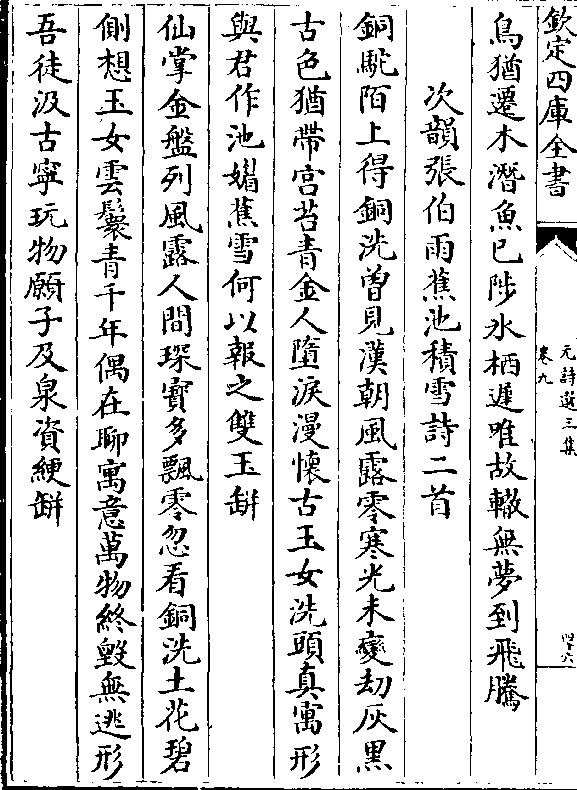 欽定四庫全書
元詩選三集
卷九
四十六
鳥猶遷木潛魚已陟氷栖遲唯故轍無夢到飛騰
次韻張伯雨蕉池積雪詩二首
銅駝陌上得銅洗曽見漢朝風露零寒光未變刧灰黑
古色猶帶宫苔青金人墮淚漫懐古玉女洗頭真寓形
與君作池媚蕉雪何以報之雙玉缾
仙掌金盤列風露人間琛寳多飄零忽看銅洗土花碧
側想玉女雲鬟青千年偶在聊寓意萬物終毁無逃形
吾徒汲古寧玩物願子及泉資綆缾